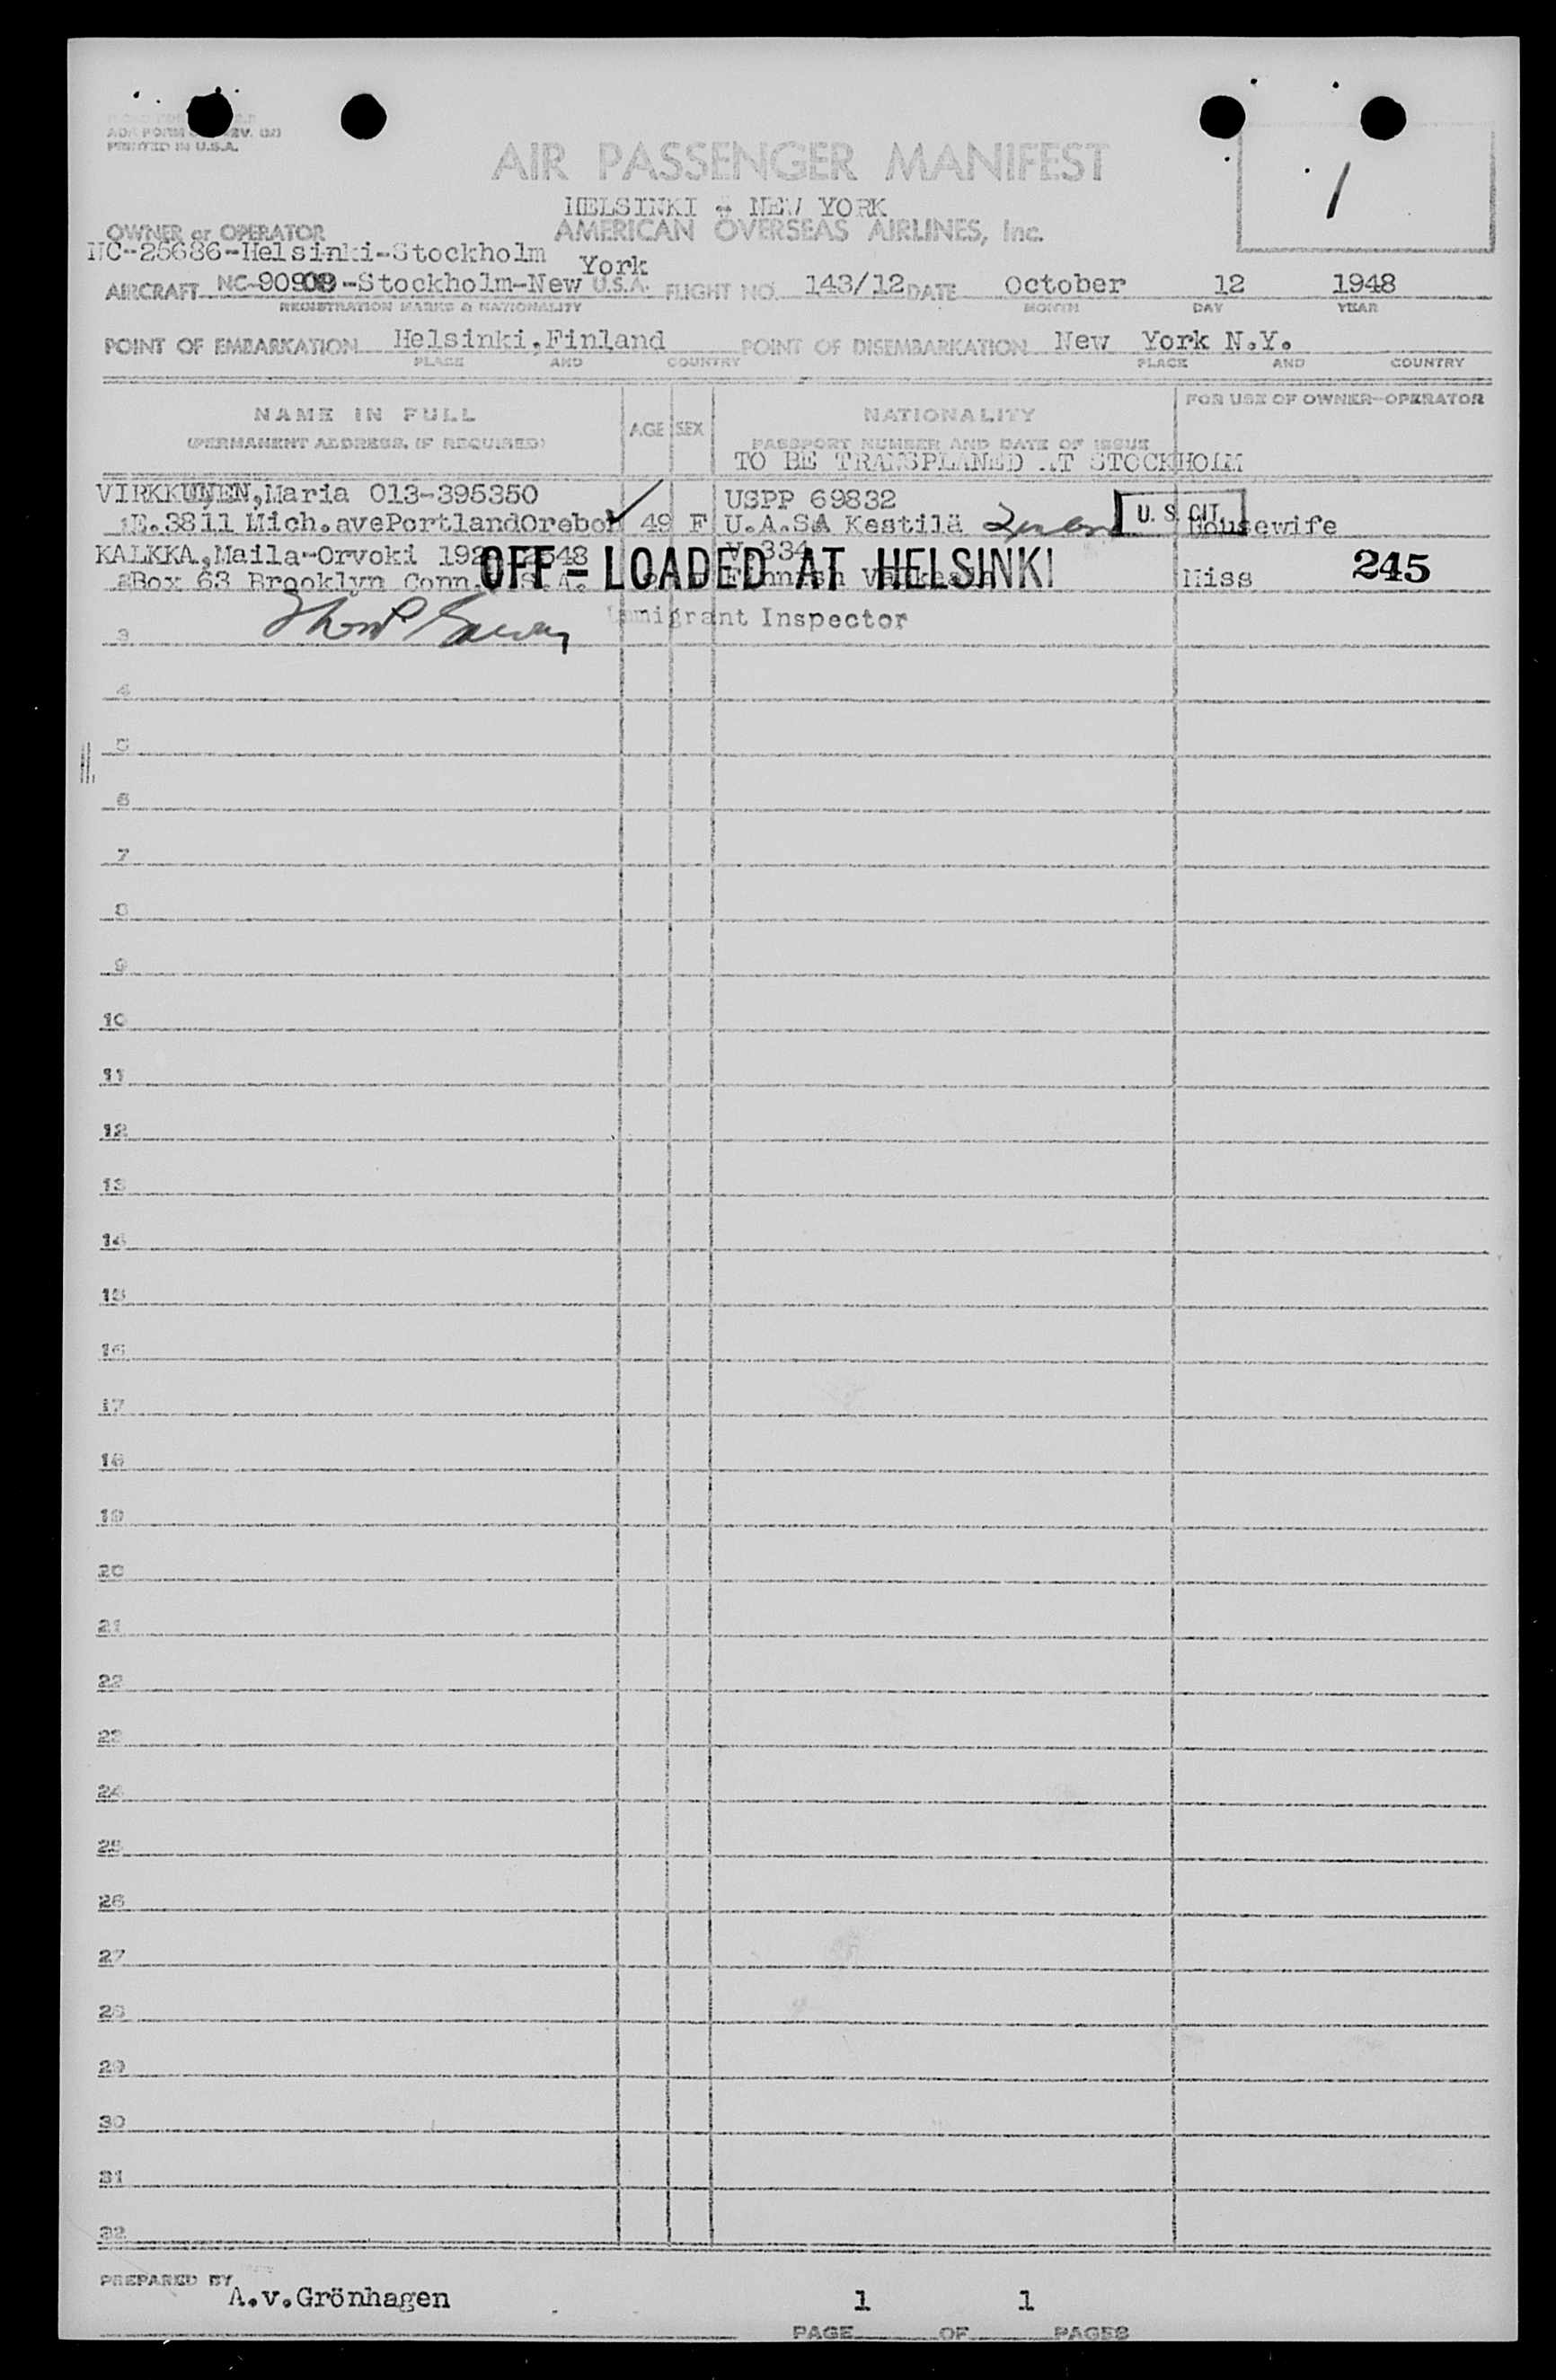 PRINTED IN U.S.A.
AIR PASSENGER MANIFEST
HELSINKI - NEW YORK
AMERICAN OVERSEAS AIRLINES, Inc.
1
OWNER or OPERATOR
NC-25686-Helsinki-Stockholm
AIRCRAFT NC-90909-Stockholm-New York U.S.A. FLIGHT NO. 143/12 DATE October 12 1948
REGISTRATION MARKS & NATIONALITY MONTH DAY YEAR
POINT OF EMBARKATION Helsinki,Finland POINT OF DISEMBARKATION New York N.Y.
PLACE AND COUNTRY PLACE AND COUNTRY
NAME IN FULL
(PERMANENT ADDRESS, IF REQUIRED)
AGE SEX
NATIONALITY
PASSPORT NUMBER AND DATE OF ISSUE
FOR USE OF OWNER-OPERATOR
TO BE TRANSPLANED AT STOCKHOLM
VIRKKUNEN,Maria 013-395350 USPP 69832
1E.3811 Mich.avePortlandOrebon 49 F U.A.SA Kestilä U. S. CIT. Housewife
KALKKA,Maila-Orvoki V.334
2Box 63 Brooklyn Conn. Miss 245
OFF-LOADED AT HELSINKI
Immigrant Inspector
3
4
5
6
7
8
9
10
11
12
13
14
15
16
17
18
19
20
21
22
23
24
25
26
27
28
29
30
31
32
PREPARED BY A.v.Grönhagen
PAGE 1 OF 1 PAGES